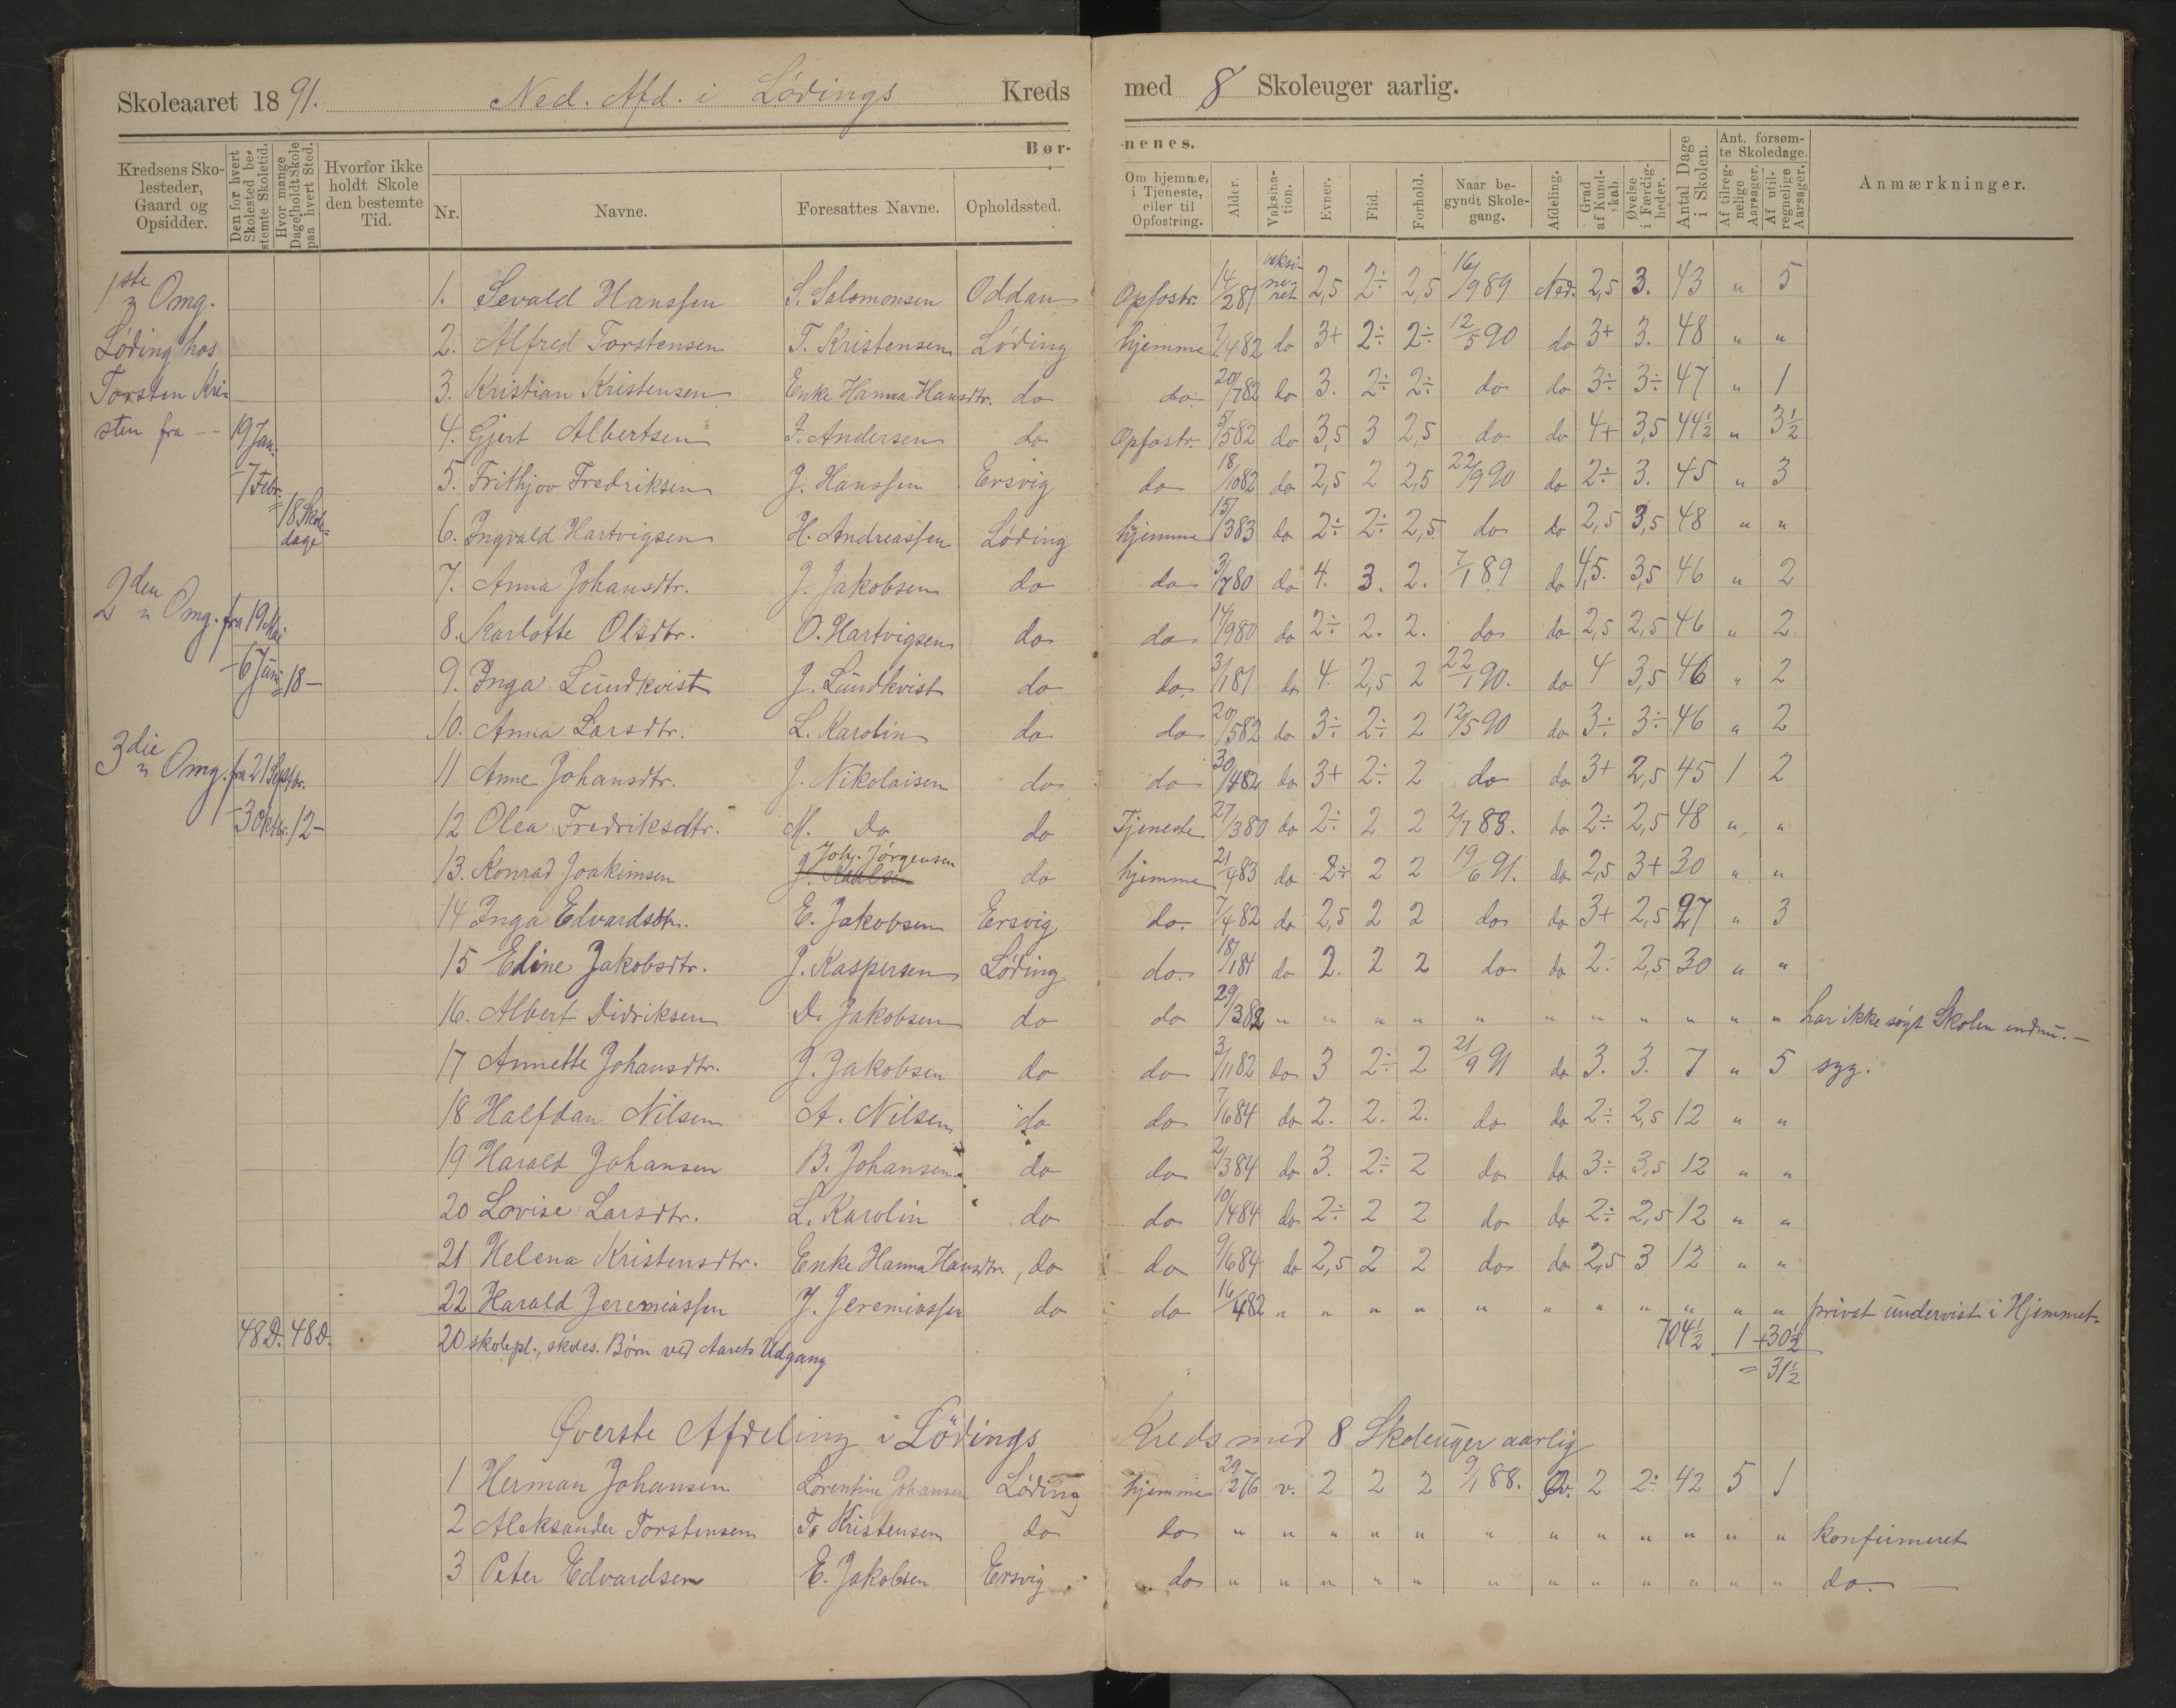 Skoleaaret 1891. Ned. Afd. i Lödings Kreds med 8 Skoleuger aarlig.
Kredsens Skolesteder, Gaard og Opsidder.
Den for hvert Skolested bestemte Skoletid.
Hvor mange Dage holdt Skole paa hvert Sted.
Hvorfor ikke holdt Skole den bestemte Tid.
Børnenes.
Nr. Navne. Foresattes Navne. Opholdssted.
Om hjemme, i Tjeneste, eller til Opfostring.
Alder. Vaksination. Evner. Flid. Forhold. Naar begyndt Skolegang. Afdeling. Grad af Kundskab. Øvelse i Færdigheder. Antal Dage i Skolen.
Ant. forsømte Skoledage.
Af tilregnelige Aarsager. Af utilregnelige Aarsager.
Anmærkninger.
1ste Omg.
Löding hos
Torsten Kristen fra -- 19 Jan.
- 7 Febr. 18 Skoledage
2den Omg. fra 19 Mai
- 6 Juni 18 -
3die Omg. fra 21 Septbr.
- 3 Oktbr. 12 -
1. Sevald Hanssen S. Salomonsen Oddan Opfostr. 14/2 81 vaksineret 2,5 2÷ 2,5 16/9 89 Ned. 2,5 3. 43 " 5
2. Alfred Torstensen T. Kristensen Löding hjemme 7/4 82 do 3+ 2÷ 2÷ 12/5 90 do 3+ 3. 48 " "
3. Kristian Kristensen Enke Hanna Hansdtr. do do 20/7 82 do 3. 2÷ 2÷ do do 3÷ 3÷ 47 " 1
4. Gjert Albertsen J. Andersen do Opfostr. 5/5 82 do 3,5 3 2,5 do do 4+ 3,5 44½ " 3½
5. Frithjov Fredriksen J. Hanssen Ersvig do 18/10 82 do 2,5 2 2,5 22/9 90 do 2÷ 3. 45 " 3
6. Ingvald Hartvigsen H. Andreassen Löding hjemme 15/3 83 do 2÷ 2÷ 2,5 do do 2,5 3,5 48 " "
7. Anna Johansdtr. J. Jakobsen do do 3/7 80 do 4. 3. 2. 7/1 89 do 4,5. 3,5 46 " 2
8. Karlotte Olsdtr. O. Hartvigsen do do 14/9 80 do 2÷ 2. 2. do do 2,5 2,5 46 " 2
9. Inga Lundkvist J. Lundkvist do do. 3/1 81 do 4. 2,5 2 22/1 90. do 4 3,5 46 " 2
10. Anna Larsdtr. L. Karolin do do 20/5 82 do 3÷ 2÷ 2 12/5 90 do 3÷ 3÷ 46 " 2
11 Anne Johansdtr. J. Nikolaisen do do 30/4 82 do 3+ 2÷ 2 do do 3+ 2,5 45 1 2
12 Olea Fredriksdtr. M. Do do Tjeneste 27/3 80 do 2÷ 2 2 2/7 88. do 2÷ 2,5 48 " "
13. Konrad Joakimsen Joh. Jörgensen do hjemme 21/4 83 do 2÷ 2 2 19/6 91. do 2,5 3+ 30 " "
14 Inga Edvardsdtr. E. Jakobsen Ersvig do. 7/4 82 do 2,5 2 2 do do 3+ 2,5 27 " 3
15 Eline Jakobsdtr. J. Kaspersen Löding do. 18/1 84 do 2. 2 2 do do 2÷ 2,5 30 " "
16. Albert Didriksen D. Jakobsen do do 29/3 82 " " " " " " " " " " " har ikke søgt Skolen endnu. -
17 Annette Johansdtr. J. Jakobsen do do 3/11 82 do 3 2÷ 2 21/9 91 do 3. 3. 7 " 5 syg.
18 Halfdan Nilsen A. Nilsen do do 7/6 84 do 2. 2. 2. do do 2÷ 2,5 12 " "
19 Harald Johansen B. Johansen do do 2/3 84 do 3. 2÷ 2 do do 3÷ 3,5 12 " "
20 Lovise Larsdtr. L. Karolin do do 10/4 84 do 2÷ 2 2 do do 2÷ 2,5 12 " "
21 Helena Kristensdtr. Enke Hanna Hansdtr. do do 9/6 84 do 2,5 2 2 do do 2,5 3 12 " "
22 Harald Jeremiassen J. Jeremiassen do do 16/4 82 " " " " " " " " " " " privat undervist i Hjemmet.
48 D. 48 D. 20 skolepl., skoles. Børn ved Aarets Udgang 704½ 1 + 30½
= 31½
Øverste Afdeling i Lödings Kreds med 8 Skoleuger aarlig
1 Herman Johansen Lorentine Johansen Löding hjemme 29/2 76 v. 2 2 2 9/1 88. Øv. 2 2÷ 42 5 1
2 Aleksander Torstensen T. Kristensen do do " " " " " " " " " " " " konfirmeret
3 Peter Edvardsen E. Jakobsen Ersvig do " " " " " " " " " " " " do. -